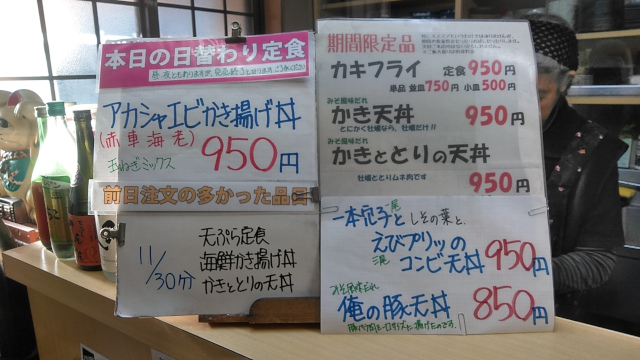 本日の日替わり定食
アカシャエビかき揚げ丼
(赤車海老)
玉ねぎミックス
950円
前日注文の多かった品目
11/30分
天ぷら定食
海鮮かき揚げ丼
かきととりの天丼
期間限定品
カキフライ 定食950円
単品 並皿750円 小皿500円
みそ風味だれ
かき天丼 950円
とにかく牡蠣なら、牡蠣だけ!!
みそ風味だれ
かきととりの天丼
牡蠣ととりムネ肉です
950円
一本穴子と しその葉と、
えびプリッの
コンビ天丼 950円
みそ風味だれ
俺の豚天丼 850円